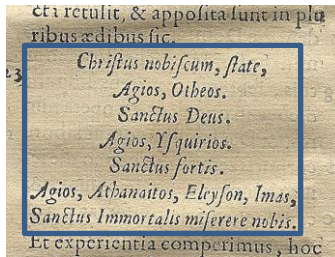 ct1 retulit, & appoſita ſunt in plu
ribus ædibus ſic.
23
Chriſtus nobiſcum, ſtate,
Agios, Otheos.
Sanctus Deus.
Agios, Yſquirios.
Sanctus fortis.
Agios, Athanaitos, Eleyſon, Imas,
Sanctus Immortalis miſerere nobis.
Et experientia comperimus, hoc